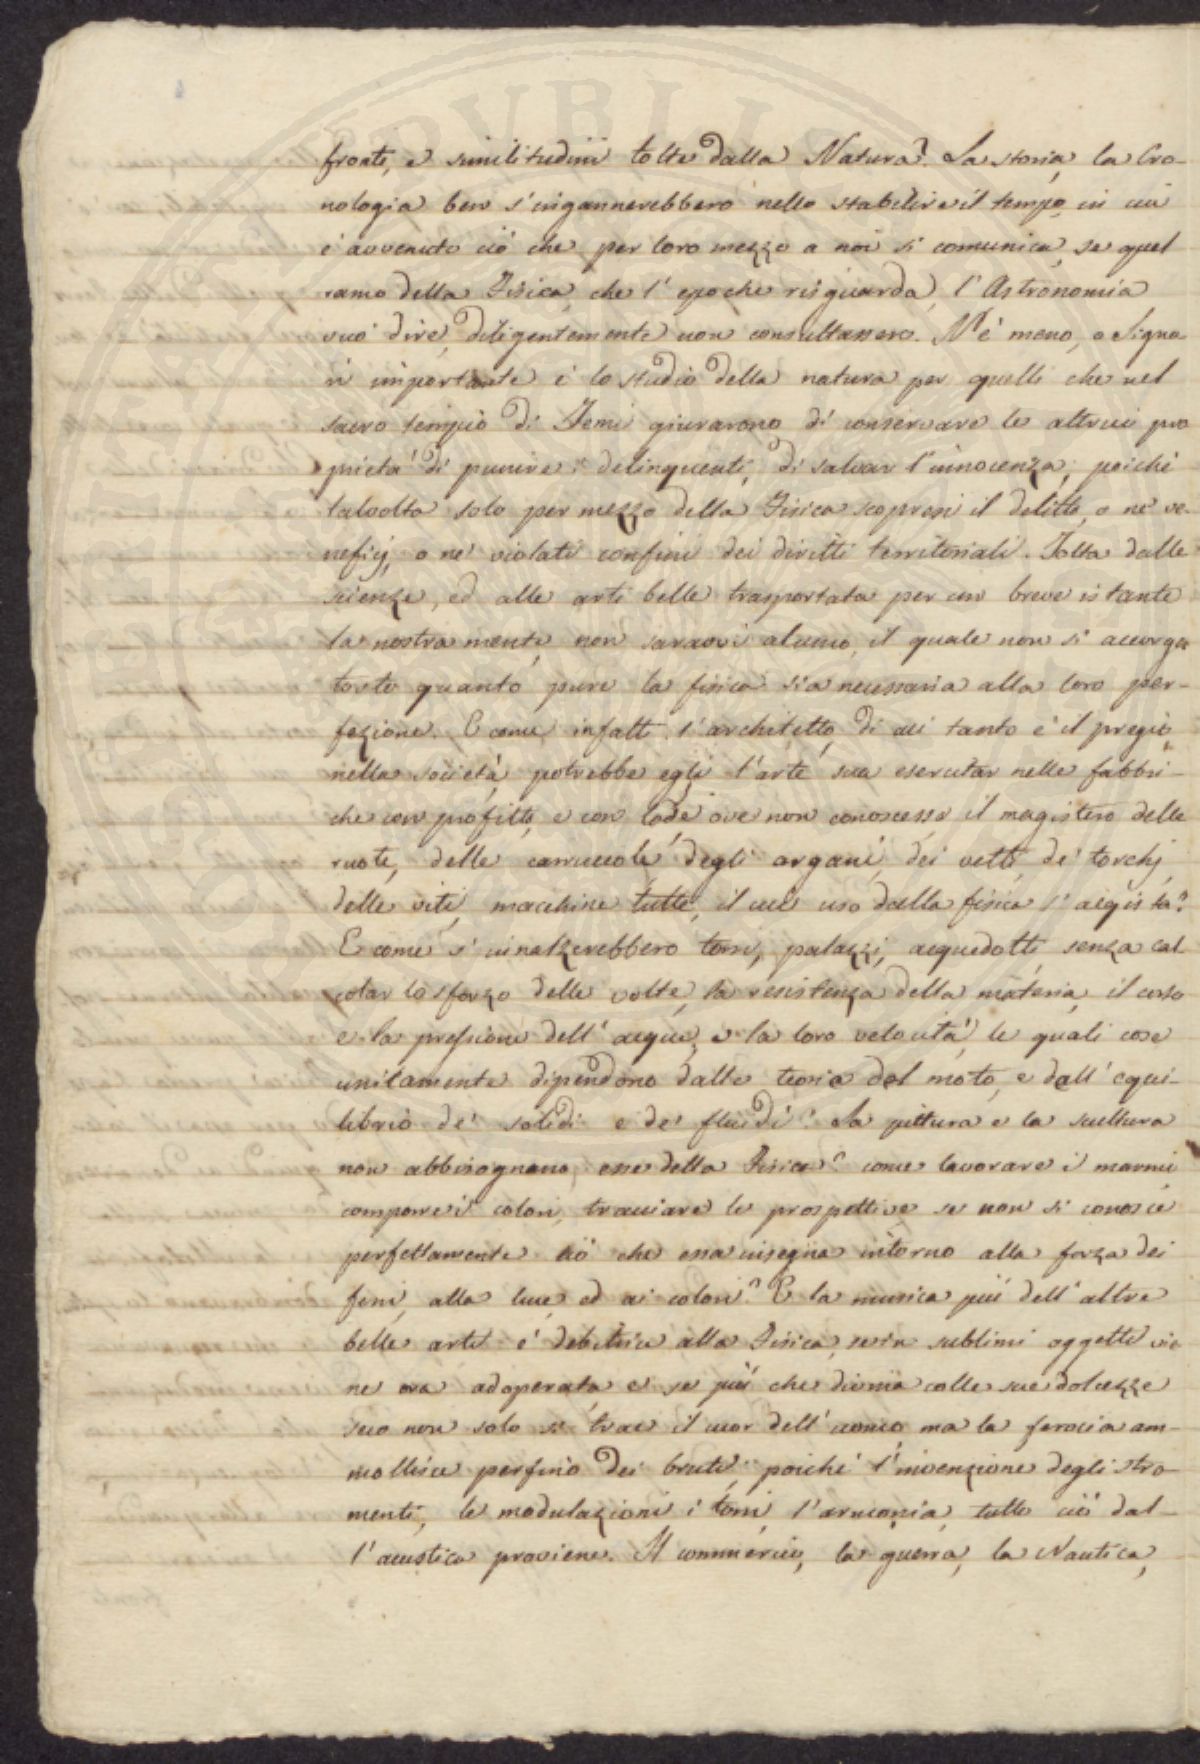 fronti, e similitudini tolte dalla Natura? La storia, la Cro-
nologia ben s'ingannerebbero nello stabilire il tempo, in cui
è avvenuto ciò che per loro mezzo a noi si comunica, se quel
ramo della Fisica, che l'epoche risguarda, l'Astronomia
vuò dire, diligentemente non consultassero. Nè meno, o Signo-
ri importante è lo studio della natura per quelli che nel
sacro tempio di Temi giurarono di conservare le altrui pro
prietà di punire i delinquenti, di salvar l'innocenza, poichè
talvolta solo per mezzo della Fisica scopresi il delitto, o ne' ve-
neficj, o ne' violati confini dei diritti territoriali. Tolta dalle
scienze, ed alle arti belle trasportata per un breve istante
la nostra mente, non saravvi alcuno, il quale non si accorga
tosto quanto pure la fisica sia necessaria alla loro per-
fezione. E come infatti l'architetto, di cui tanto è il pregio
nella società, potrebbe egli l'arte sua esercitar nelle fabbri-
che con profitto, e con lode ove non conoscesse il magistero delle
ruote, delle carruccole, degli argani, dei vetti, de' torchj,
delle viti, macchine tutte, il cui uso dalla fisica s'acquista?
E come s'innalzerebbero torri, palazzi, acquedotti senza cal
colar lo sforzo delle volte, la resistenza della materia, il corso
e la pressione dell'acque, e la loro velocità, le quali cose
unitamente dipendono dalla teoria del moto, e dall'equi-
librio de' solidi e de' fluidi? La pittura e la scultura
non abbisognano esse della Fisica? come lavorare i marmi
comporre i colori, tracciare le prospettive se non si conosce
perfettamente ciò che essa insegna intorno alla forza dei
fini, alla luce, ed ai colori? E la musica più dell'altre
belle arti è debitrice alla Fisica, se in sublimi oggetti vie
ne ora adoperata, e se più che divina colle sue dolcezze
seco non solo si trae il cuor dell'uomo, ma la ferocia am-
mollisce perfino dei bruti, poichè l'invenzione degli stro-
menti, le modulazioni i toni, l'armonia, tutto ciò dal-
l'acustica proviene. Il commercio, la guerra, la Nautica,